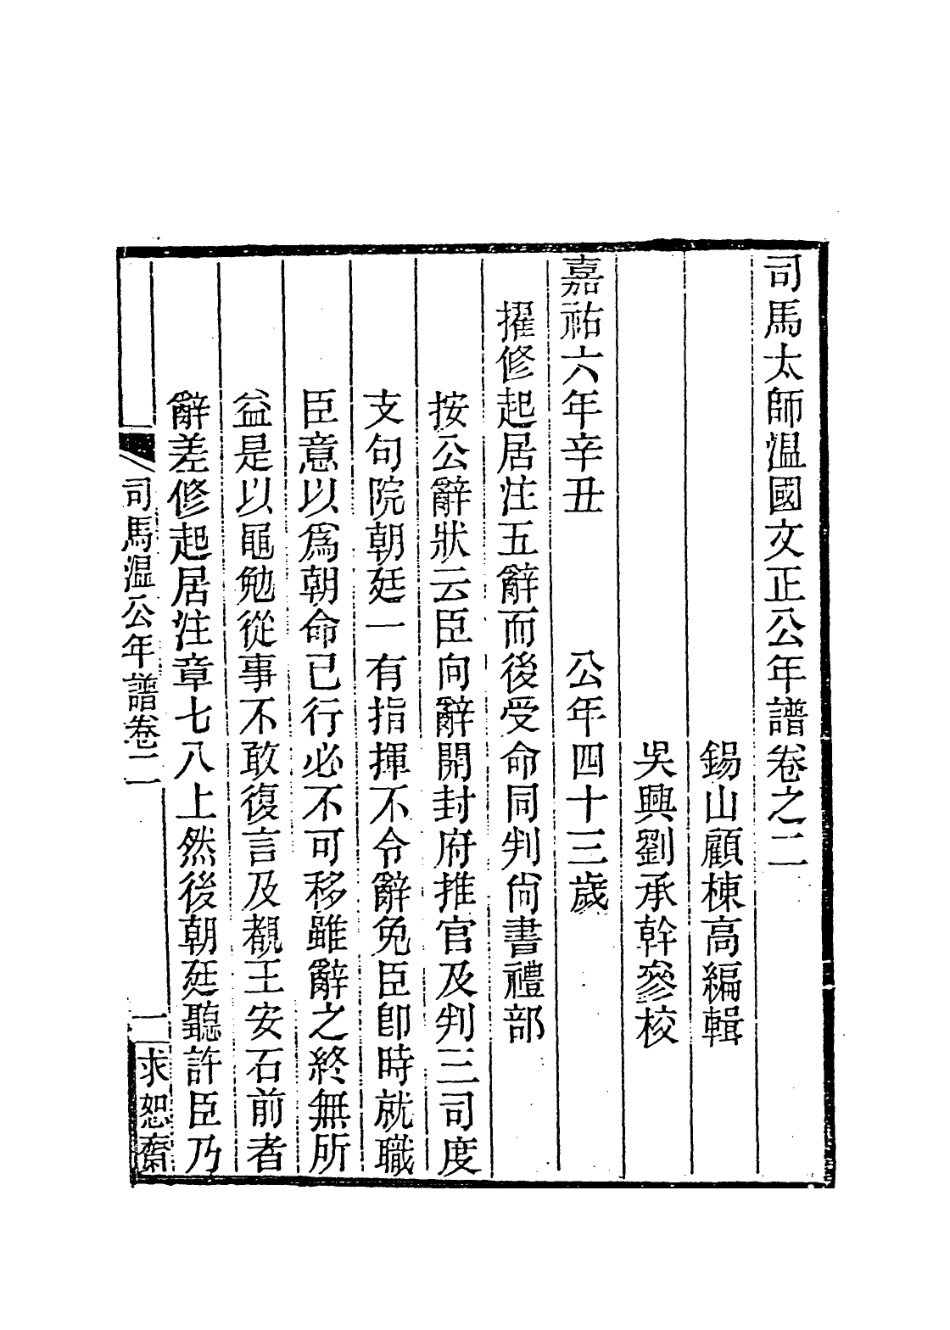 司馬太師溫國文正公年譜卷之二
錫山顧棟高編輯
吳興劉承幹參校
嘉祐六年辛丑　公年四十三歲
擢修起居注五辭而後受命同判尙書禮部
按公辭狀云臣向辭開封府推官及判三司度
支句院朝廷一有指揮不令辭免臣卽時就職
臣意以爲朝命已行必不可移雖辭之終無所
益是以黽勉從事不敢復言及覩王安石前者
辭差修起居注章七八上然後朝廷聽許臣乃
司馬溫公年譜卷二
一
求恕齋